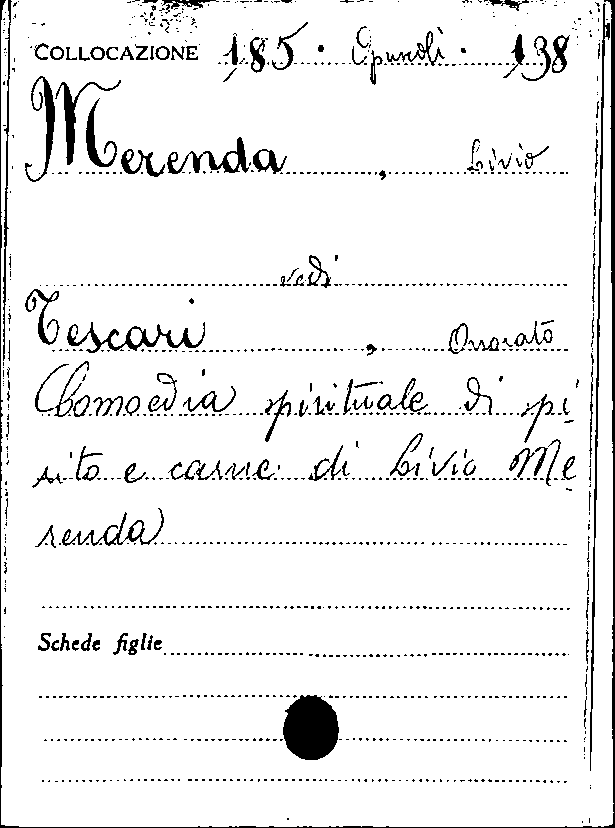 COLLOCAZIONE 185 · Opuscoli · 138
Merenda, Livio
vedi
Tescari, Onorato
Comoedia spirituale di spi
rito e carne di Livio Me
renda
Schede figlie